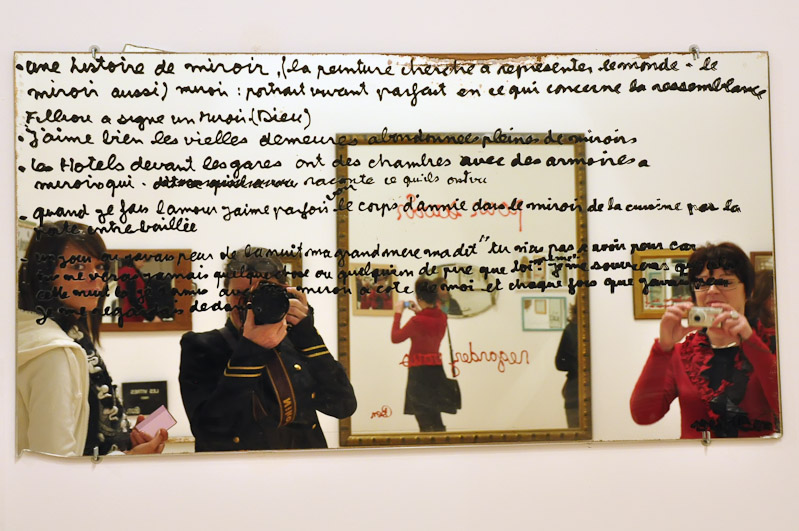 • une histoire de miroir, (la peinture cherche a representer le monde - le
miroir aussi) miroir : portrait vivant parfait en ce qui concerne la ressemblance
Filliou a signe un miroir (Dieu)
• J'aime bien les vielles demeures abandonnees pleines de miroirs
• Les Hotels devant les gares ont des chambres avec des armoires a
miroirs qui raconte ce qu'ils ont vu
• quand je fais l'amour j'aime parfois voir le corps d'annie dans le miroir de la cuisine par la
porte entre baillée
- un jour ou j'avais peur de la nuit ma grand mere ma dit "tu n'as pas a avoir pour car
tu ne verras jamais quelque chose ou quelqu'un de pire que toi même" je me souviens
cette nuit miroir a cote de moi et chaque fois que j'avais peur
je me regardais dedans
regardez
Ben
NIKON